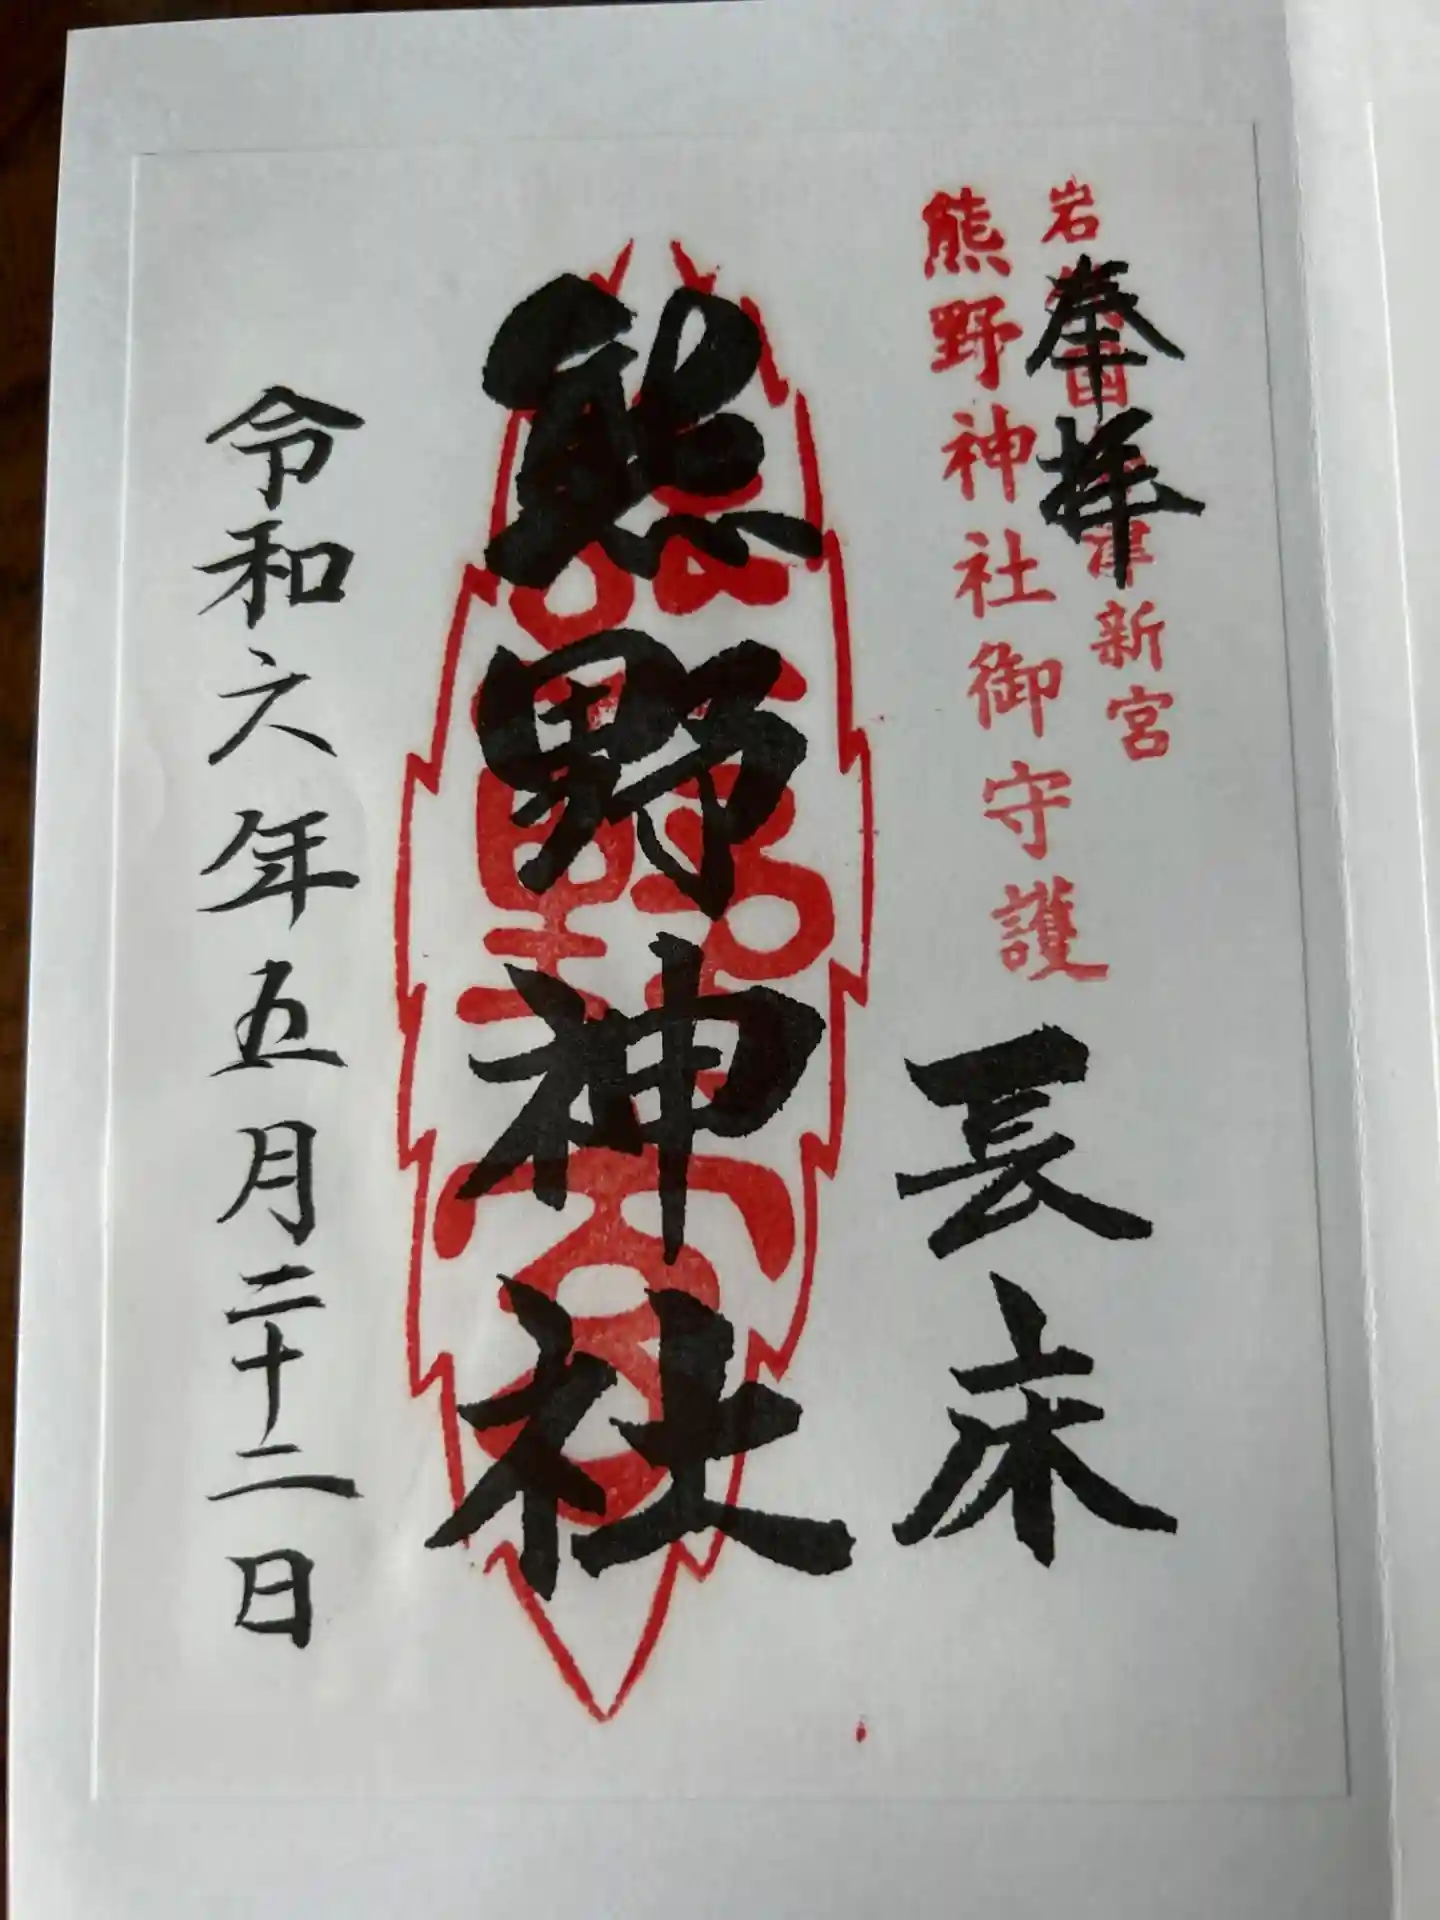 奉拝
岩 国 津新宮
熊野神社御守護
長床
熊野神社
令和六年五月二十二日